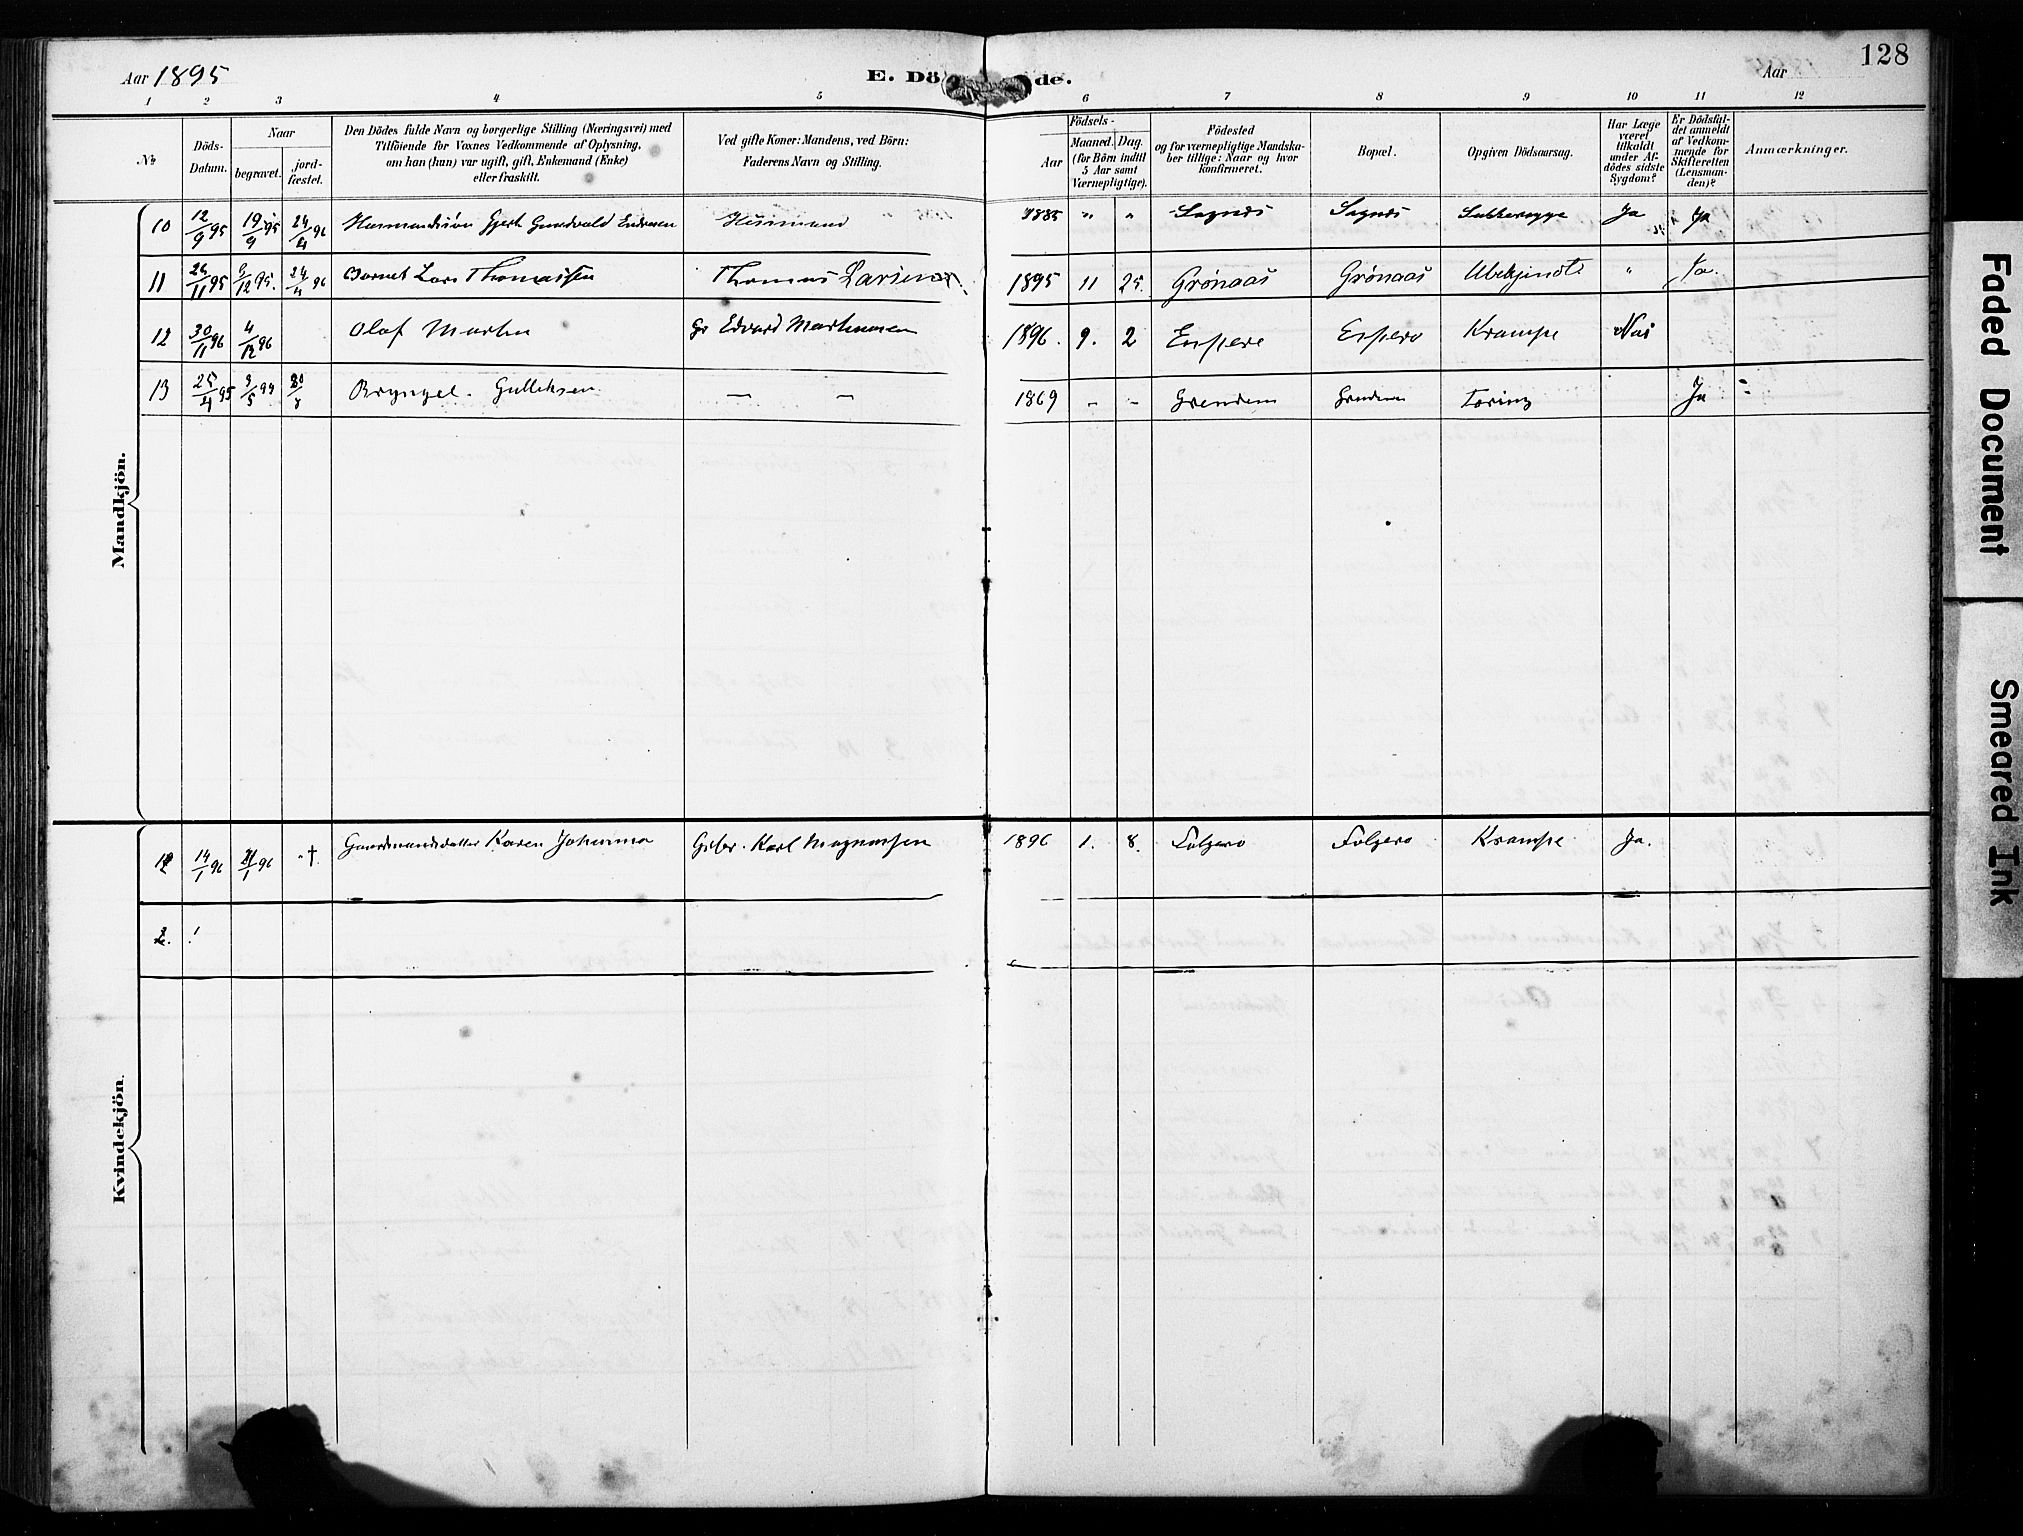 128
Aar 1895
E. Dö de.
Aar
1 2 3 4 5 6 7 8 9 10 11 12
No
Döds-
Datum.
Naar
begravet.
jord-
fæstet.
Den Dödes fulde Navn og borgerlige Stilling (Næringsvei) med
Tilföiende for Voxnes Vedkommende af Oplysning,
om han (hun) var ugift, gift, Enkemand (Enke)
eller fraskilt.
Ved gifte Koner: Mandens, ved Börn:
Faderens Navn og Stilling.
Födsels-
Aar
Maaned. Dag.
(for Börn indtil
5 Aar samt
Værnepligtige).
Födested
og for værnepligtige Mandska-
ber tillige: Naar og hvor
konfirmeret.
Bopæl.
Opgiven Dödsaarsag.
Har Læge
været
tilkaldt
under Af-
dödes sidste
Sygdom?
Er Dödsfal-
det anmeldt
af Vedkom-
mende for
Skifteretten
(Lensman-
den)?
Anmærkninger.
Mandkjön.
10 12/9 95 19/9 95 24/4 96 Gjert Gundvald Endresen Husmand 1885 " " Sognes Sognes Ja Ja
11 24/11 95 9/12 95. 24/4 96 Barnet Lars Thomassen Thomas Larsen 1895 11 25. Grönaas Grönaas Ubekjendt " Ja.
12 30/11 96 4/12 96 Olaf Martin Gr Edvard Martinusen 1896. 9. 2 Espere Espero Krampe Nei
13 25/4 95 3/5 8 Bryngel Gulleksen — — 1869 - - Grendem Grendem Tæring Ja
Kvindekjön.
12 14/1 96 21/1 96 "† Gaardmandsdatter Karen Johanna Grbr. Karl Magnussen 1896 1. 8. Folgero Folgero Krampe Ja.
2.
Faded Document
Smeared Ink